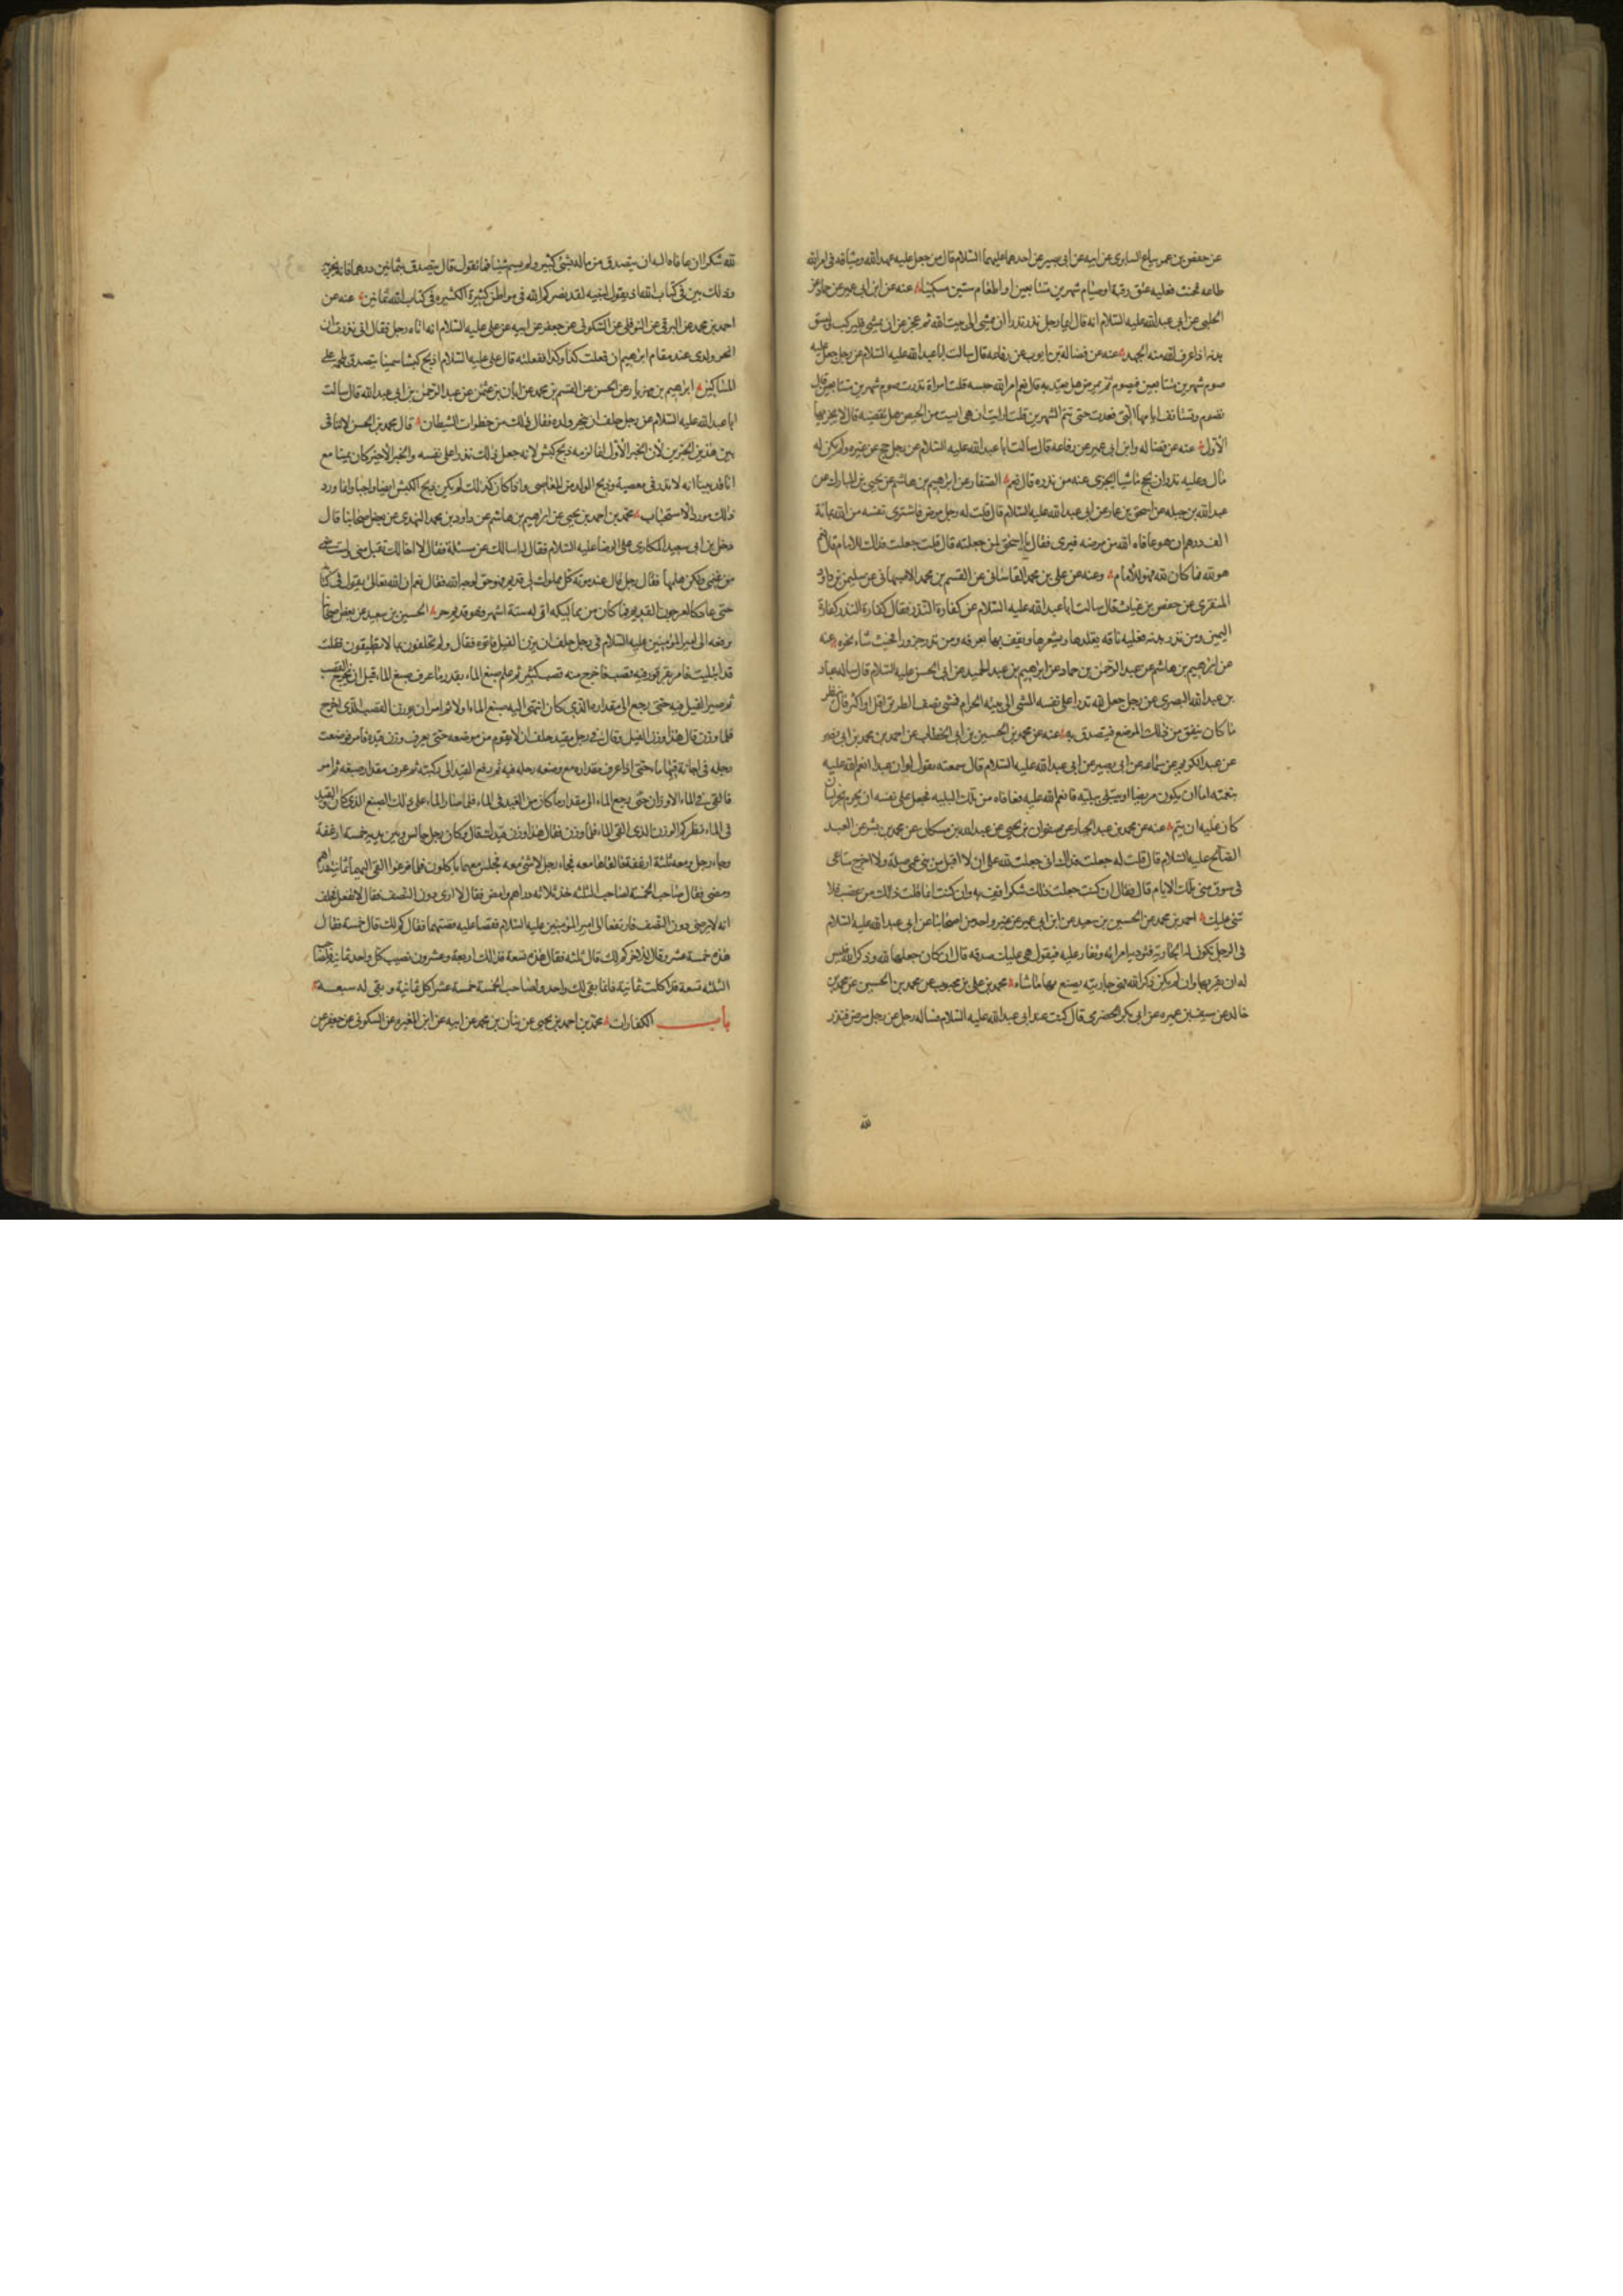 عن حفص بن عمر بياع السابري عن ابيه عن ابي بصير عن احدهما عليهما السلام قال من جعل عليه عهد الله وميثاقه في امر الله
طاعه فحنث فعليه عتق رقبة او صيام شهرين متتابعين او اطعام ستين مسكينا عنه عن ابن ابي عمير عن حماد عن
الحلبي عن ابي عبد الله عليه السلام انه قال ايما رجل نذر نذرا ان يمشي الى بيت الله ثم عجز عن ان يمشي فليركب وليسق
بدنه اذا عرف الله منه الجهد عنه عن فضالة بن ايوب عن رفاعه قال سالت ابا عبد الله عليه السلام عن رجل جعل عليه
صوم شهرين متتابعين فيصوم ثم يمرض هل يعتد به قال نعم امر الله حبسه قلت امراة نذرت صوم شهرين متتابعين قال
تصوم وتستانف ايامها التي قعدت حتى تتم الشهرين قلت ارايت ان هي ايست من الحيض هل تقضيه قال لا يجزيها
الاول عنه عن فضاله وابن ابي عمير عن رفاعه قال سالت ابا عبد الله عليه السلام عن رجل حج عن غيره ولم يكن له
مال وعليه نذر ان يحج ماشيا ايجزي عنه من نذره قال نعم الصفار عن ابرهيم بن هاشم عن يحيى بن المبارك عن
عبد الله بن جبله عن اسحق بن عمار عن ابي عبد الله عليه السلام قال قلت له رجل مرض فاشترى نفسه من الله بمائة
الف درهم ان هو عافاه الله من مرضه فبرى فقال يا اسحق لمن جعلته قال قلت جعلت فداك للامام قال نعم
هو لله فما كان لله فهو للامام وعنه عن علي بن محمد القاساني عن القسم بن محمد الاصبهاني عن سليمن بن داود
المنقري عن حفص بن غياث قال سالت ابا عبد الله عليه السلام عن كفارة النذر فقال كفارة النذر كفارة
اليمين ومن نذر بدنه فعليه ناقه يقلدها ويشعرها ويقف بها بعرفه ومن نذر جزورا فحيث شاء نحره عنه
عن ابرهيم بن هاشم عن عبد الرحمن بن حماد عن ابرهيم بن عبد الحميد عن ابي الحسن عليه السلام قال ساله عباد
بن عبد الله البصري عن رجل جعل لله نذرا على نفسه المشي الى بيته الحرام فمشى نصف الطريق اقل او اكثر قال ينظر
ما كان ينفق من ذلك الموضع فيتصدق به عنه عن محمد بن الحسين بن ابي الخطاب عن احمد بن محمد بن ابي نصر
عن عبد الكريم عن سماعه عن ابي بصير عن ابي عبد الله عليه السلام قال سمعته يقول لو ان عبدا انعم الله عليه
بنعمته اما ان يكون مريضا او يبتلى ببليه فانعم الله عليه فعافاه من تلك البليه فجعل على نفسه ان يحرم بخراسان
كان عليه ان يتم عنه عن محمد بن عبد الجبار عن صفوان بن يحيى عن عبد الله بن مسكان عن محمد بن بشر عن العبد
الصالح عليه السلام قال قلت له جعلت فداك اني جعلت لله على ان لا اقبل من بني عمي صلة ولا اخرج متاعي
في سوق منى تلك الايام قال فقال ان كنت جعلت ذلك شكرا فف به وان كنت انما قلت ذلك من غضب فلا
شئ عليك احمد بن محمد عن الحسين بن سعيد عن ابن ابي عمير عن غير واحد من اصحابنا عن ابي عبد الله عليه السلام
في الرجل يكون له الجارية فتؤذيه امراته وتغار عليه فيقول هي عليك صدقه قال ان كان جعلها لله وذكر الله فليس
له ان يقربها وان لم يكن ذكر الله فهي جاريته يصنع بها ما شاء محمد بن علي بن محبوب عن محمد بن الحسين عن محمد بن
خالد عن سيف بن عميره عن ابي بكر الحضرمي قال كنت عند ابي عبد الله عليه السلام فساله رجل عن رجل مرض فنذر
لله
لله شكرا ان عافاه الله ان يتصدق من ماله بشئ كثير ولم يسم شيئا فما تقول قال يتصدق بثمانين درهما فانه يجزيه
وذلك بين في كتاب الله اذ يقول لنبيه لقد نصركم الله في مواطن كثيرة الكثيره في كتاب الله ثمانين عنه عن
احمد بن محمد عن البرقي عن النوفلي عن السكوني عن جعفر عن ابيه عن علي عليه السلام انه اتاه رجل فقال اني نذرت ان
انحر ولدي عند مقام ابرهيم ان فعلت كذا وكذا ففعلته قال علي عليه السلام اذبح كبشا سمينا يتصدق بلحمه على
المساكين ابرهيم بن مهزيار عن الحسن عن القسم بن محمد عن ابان بن عثمن عن عبد الرحمن بن ابي عبد الله قال سالت
ابا عبد الله عليه السلام عن رجل حلف ان ينحر ولده فقال ذلك من خطوات الشيطان قال محمد بن الحسن لا تنافي
بين هذين الخبرين لان الخبر الاول انما لزمه ذبح كبش لانه جعل ذلك نذرا على نفسه والخبر الاخير كان يمينا مع
انا قد بينا انه لا نذر في معصية وذبح الولد من المعاصي واذا كان كذلك لم يكن ذبح الكبش ايضا واجبا وانما ورد
ذلك مورد الاستحباب محمد بن احمد بن يحيى عن ابرهيم بن هاشم عن داود بن محمد النهدي عن بعض اصحابنا قال
دخل بن ابي سعيد المكاري على الرضا عليه السلام فقال له اسالك عن مسئلة فقال لا اخالك تقبل مني ولست
من غنمي ولكن هلمها فقال رجل قال عند موته كل مملوك لي قديم فهو حر لوجه الله فقال نعم ان الله تعالى يقول في كتابه
حتى عاد كالعرجون القديم فما كان من مماليكه اتى له ستة اشهر فهو قديم حر الحسين بن سعيد عن بعض اصحابنا
يرفعه الى امير المؤمنين عليه السلام في رجل حلف ان يزن الفيل فاتوه فقال ولم تحلفون بما لا تطيقون فقلت
قد ابتليت فامر بقرقور فيه قصب فاخرج منه قصب كثير ثم علم صبغ الماء بقدر ما عرف صبغ الماء قبل ان يخرج القصب
ثم صير الفيل فيه حتى رجع الى مقداره الذي كان انتهى اليه صبغ الماء اولا ثم امر ان يوزن القصب الذي اخرج
فلما وزن قال هذا وزن الفيل وقال في رجل مقيد حلف ان لا يقوم من موضعه حتى يعرف وزن قيده فامر فوضعت
رجله في اجانة فيها ماء حتى اذا عرف مقداره مع وضعه رجله فيه ثم رفع القيد الى ركبته ثم عرف مقدار صبغه ثم امر
فالقي في الماء الاوزان حتى رجع الماء الى مقدار ما كان من القيد في الماء فلما صار الماء على ذلك الصبغ الذي كان والقيد
في الماء نظر كم الوزن الذي القي في الماء فلما وزن فقال هذا وزن قيدك قال وكان رجل جالس وبين يديه خمسة ارغفة
وجاء رجل ومعه ثلثة ارغفة فالقاها معه فجاء رجل لا شئ معه فجلس معهما ياكلون فلما فرغوا القى اليهما ثمانية دراهم
ومضى فقال صاحب الخمسة لصاحب الثلثة خذ ثلاثة دراهم وامض فقال لا ارى دون النصف فقال لا تفعل فحلف
انه لا يرضى دون النصف فارتفعا الى امير المؤمنين عليه السلام فقصا عليه قصتهما فقال كم لك قال خمسة فقال
هذه خمسة عشر وقال للاخر كم لك قال ثلثه فقال هذه تسعة فذلك اربعة وعشرون نصيب كل واحد ثمانية فلصاحب
الثلثه تسعة قد اكلت ثمانية فانما بقي لك واحد ولصاحب الخمسة خمسة عشر اكل ثمانية وبقي له سبعه
باب الكفارات محمد بن احمد بن يحيى عن بنان بن محمد عن ابيه عن ابن المغيره عن السكوني عن جعفر عن